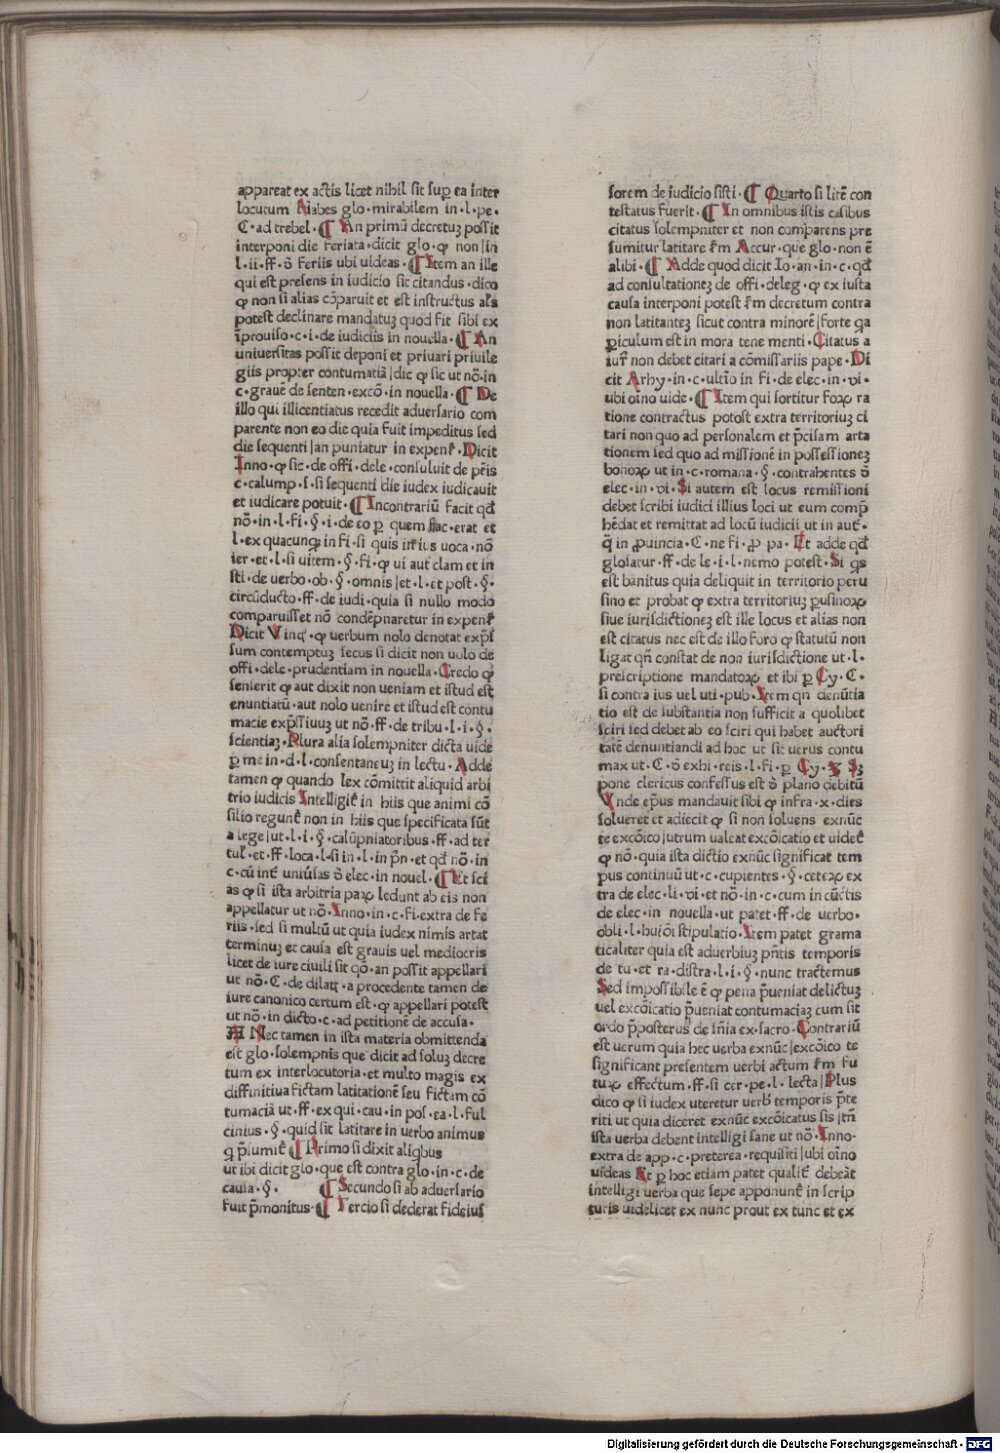 appareat ex actis licet nihil sit sup̱ ea inter
locutum Habes glo·mirabilem in·l·pe·
C·ad trebel·¶ An primū decretuȝ possit
interponi die feriata·dicit glo·ꝙ non|in
l·ii·ff·ō feriis ubi uideas·¶ Item an ille
qui est presens in iudicio sit citandus·dico
ꝙ non si alias cōparuit et est instructus als̄
potest declinare mandatuȝ quod fit sibi ex
īprouiso·c·i·de iudiciis in nouella·¶ An
uniuersitas possit deponi et priuari priuile
giis propter contumatiā|dic ꝙ sic ut nō·in
c·graue de senten·excō·in nouella·¶ De
illo qui illicentiatus recedit aduersario com
parente non eo die quia fuit impeditus sed
die sequenti|an puniatur in expens̄·Dicit
Inno·ꝙ sic·de offi·dele·consuluit de pr̄is
c·calump·s·si sequenti die iudex iudicauit
et iudicare potuit·¶ Incontrariū facit qd̄
nō·in·l·fi·§·i·de eo ꝑ quem fac·erat et
l·ex quacunqȝ in fi·si quis in ius uoca·nō
ier·et·l·si uitem·§·fi·ꝙ ui aut clam et in
sti·de uerbo·ob·§·omnis|et·l·et post·§·
circūducto·ff·de iudi·quia si nullo modo
comparuisset nō condēpnaretur in expens̄
Dicit Vinc̄·ꝙ uerbum nolo denotat exp̄s
sum contemptuȝ secus si dicit non uolo de
offi·dele·prudentiam in nouella·Credo ꝙ
senserit ꝙ aut dixit non ueniam et istud est
enuntiatū·aut nolo uenire et istud est contu
macie exp̄ssiuuȝ ut nō·ff·de tribu·l·i·§·
scientiaȝ·Plura alia solempniter dicta uide
ꝑ me in·d·l·consentaneuȝ in lectu·Adde
tamen ꝙ quando lex cōmittit aliquid arbi
trio iudicis Intelligit̄ in hiis que animi cō
silio regunt̄ non in hiis que specificata sūt
a lege|ut·l·i·§·calūpniatoribus·ff·ad ter
tul·et·ff·loca·l·si in·l·in p̄n·et qd̄ nō·in
c·cū int̄ uniūsas ō elec·in nouel·¶ Et sci
as ꝙ si ista arbitria paꝝ ledunt ab eis non
appellatur ut nō·Inno·in·c·fi·extra de fe
riis·sed si multū ut quia iudex nimis artat
terminuȝ et causa est grauis uel mediocris
licet de iure ciuili sit qō·an possit appellari
ut nō·C·de dilat̄·a procedente tamen de
iure canonico certum est·ꝙ appellari potest
ut nō·in dicto·c·ad petitionē de accusa·
Nec tamen in ista materia obmittenda
est glo·solempnis que dicit ad soluȝ decre
tum ex interlocutoria·et multo magis ex
diffinitiua fictam latitationē seu fictam cō
tumaciā ut·ff·ex qui·cau·in pos·ea·l·ful
cinius·§·quid sit latitare in uerbo animus
q p̄sumit̄ ¶ Primo si dixit aliqbus
ut ibi dicit glo·que est contra glo·in·c·de
causa·§· ¶ Secundo si ab aduersario
fuit p̄monitus·¶ Tercio si dederat fideius
sorem de iudicio sisti·¶ Quarto si litē con
testatus fuerit·¶ In omnibus istis casibus
citatus solempniter et non comparens pre
sumitur latitare s̄m Accur·que glo·non ē
alibi·¶ Adde quod dicit Io·an·in·c·qd̄
ad consultationeȝ de offi·deleg·ꝙ ex iusta
causa interponi potest s̄m decretum contra
non latitanteȝ sicut contra minorē|forte qa
ꝑiculum est in mora tene menti·Citatus a
iur̄ non debet citari a cōmissariis pape·Di
cit Archy·in·c·ultīo in fi·de elec·in·vi·
ubi oīno uide·¶ Item qui sortitur foꝝ ra
tione contractus potost extra territoriuȝ ci
tari non quo ad personalem et p̄cisam arta
tionem sed quo ad missionē in possessioneȝ
bonoꝝ ut in·c·romana·§·contrahentes ō
elec·in·vi·Si autem est locus remissioni
debet scribi iudici illius loci ut eum comp̄
hēdat et remittat ad locū iudicii ut in aut̄·
q̄ in ꝓuincia·C·ne fi·ꝓ pa·Et adde qd̄
glosatur·ff·de le·i·l·nemo potest·Si qs
est bānitus quia deliquit in territorio peru
sino et probat ꝙ extra territoriuȝ ꝑusinoꝝ
siue iurisdictioneȝ est ille locus et alias non
est citatus nec est de illo foro ꝙ statutū non
ligat qn̄ constat de non iurisdictione ut·l·
prescriptione mandatoꝝ et ibi ꝑ Cy·C·
si contra ius uel uti·pub·Item qn denūtia
tio est de substantia non sufficit a quolibet
sciri sed debet ab eo sciri qui habet auctori
tatē denuntiandi ad hoc ut sit uerus contu
max ut·C·ō exhi·reis·l·fi·ꝑ Cy·
pone clericus confessus est ō plano debitū
Vnde ep̄us mandauit sibi ꝙ infra·x·dies
solueret et adiecit ꝙ si non soluens exnūc
te excōico|utrum ualeat excōicatio et uidet̄
ꝙ nō·quia ista dictio exnūc significat tem
pus continuū ut·c·cupientes·§·ceteꝝ ex
tra de elec·li·vi·et nō·in·c·cum in cūctis
de elec·in nouella·ut patet·ff·de uerbo·
obli·l·huiōi stipulatio·Item patet grama
ticaliter quia est aduerbiuȝ p̄ntis temporis
de tu·et ra·distra·l·i·§·nunc tractemus
Sed impossibile ē ꝙ pena p̄ueniat delictuȝ
uel excōicatio p̄ueniat contumaciaȝ cum sit
ordo p̄posterus de sn̄ia ex·sacro·Contrariū
est uerum quia hec uerba exnūc|excōico te
significant presentem uerbi actum s̄m fu
tuꝝ effectum·ff·si cer·pe·l·lecta|Plus
dico ꝙ si iudex uteretur uerb̄ temporis p̄te
riti ut quia diceret exnūc excōicatus sis|tn̄
ista uerba debent intelligi sane ut nō·Inno·
extra de app·c·preterea·requisiti|ubi oīno
uideas Et ꝑ hoc etiam patet qualit̄ debeāt
intelligi uerba que sepe apponunt̄ in scrip
turis uidelicet ex nunc prout ex tunc et ex
Digitalisierung gefördert durch die Deutsche Forschungsgemeinschaft · DFG